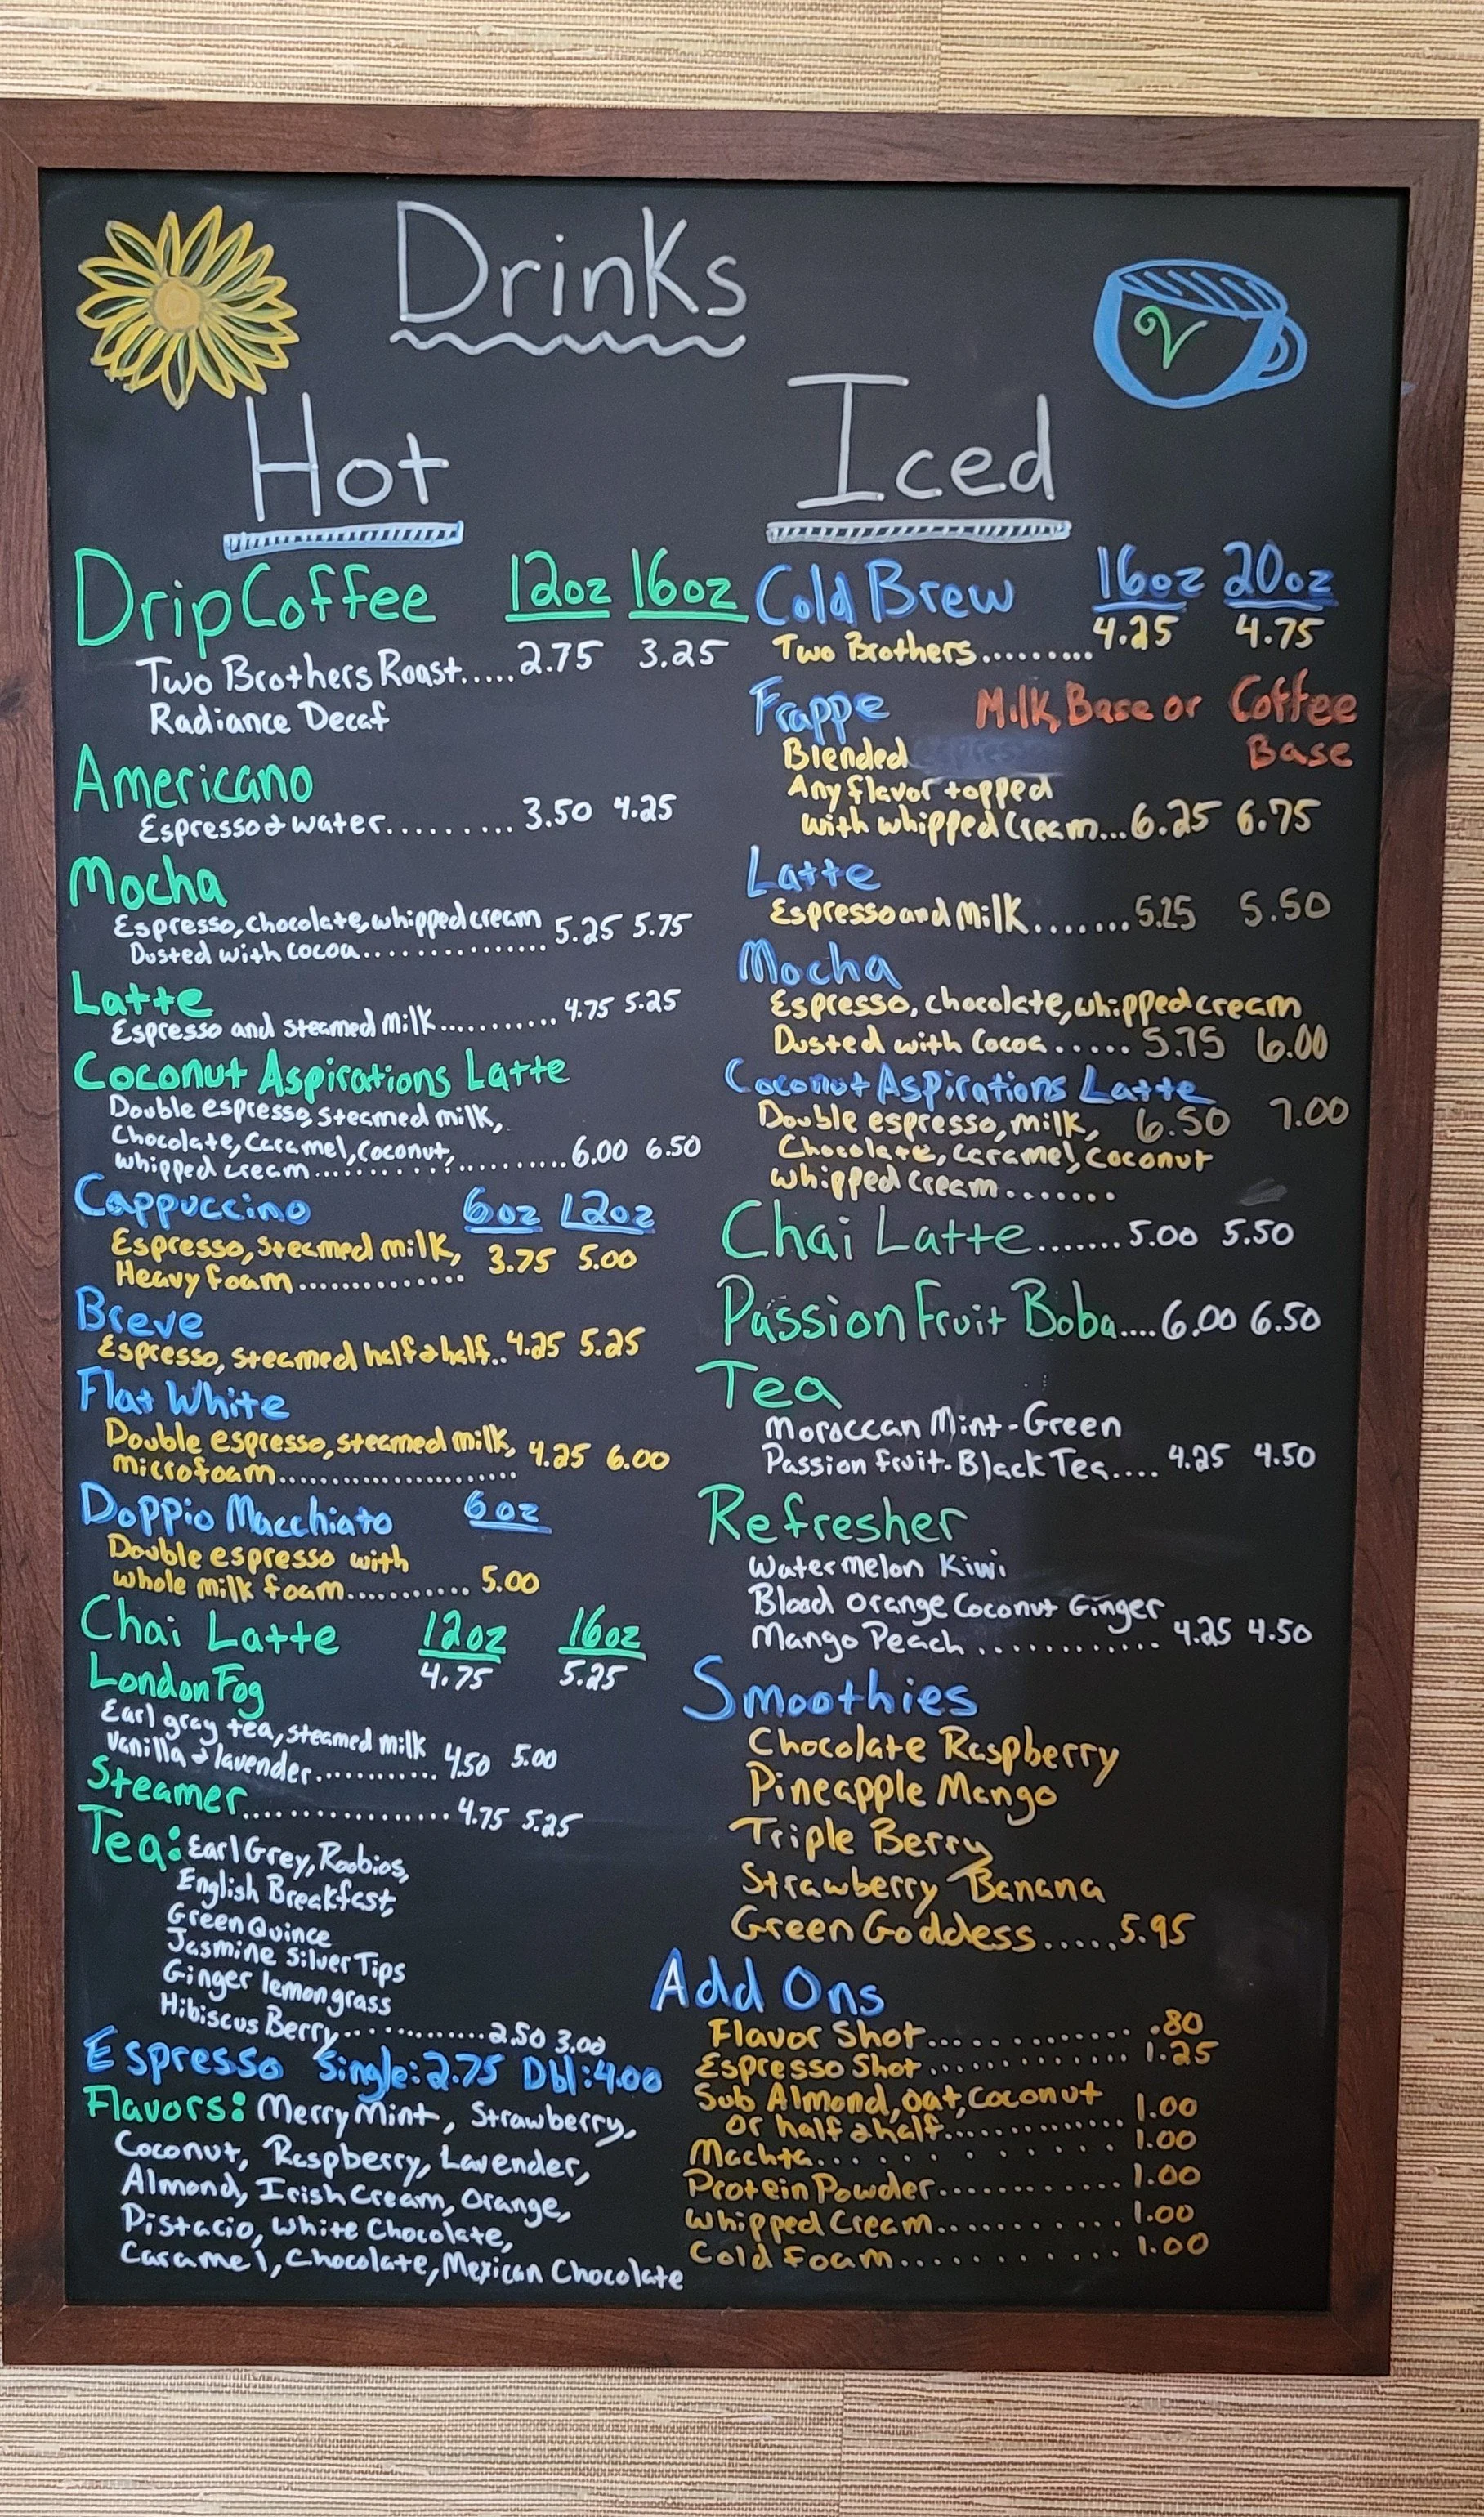 Drinks
V
Hot
Drip Coffee 12oz 16oz
Two Brothers Roast.....2.75 3.25
Radiance Decaf
Americano
Espresso & water.......... 3.50 4.25
Mocha
Espresso, chocolate, whipped cream 5.25 5.75
Dusted with cocoa...............
Latte
Espresso and steamed milk........... 4.75 5.25
Coconut Aspirations Latte
Double espresso, steamed milk,
Chocolate, Caramel, Coconut,
whipped cream.......................6.00 6.50
Cappuccino 6oz 12oz
Espresso, steamed milk, 3.75 5.00
Heavy foam..............
Breve
Espresso, steamed half & half..4.25 5.25
Flat White
Double espresso, steamed milk, 4.25 6.00
microfoam.......................
Doppio Macchiato 6oz
Double espresso with
whole milk foam........... 5.00
Chai Latte 12oz 16oz
4.75 5.25
London Fog
Earl gray tea, steamed milk 4.50 5.00
Vanilla & lavender............
Steamer..................4.75 5.25
Tea: Earl Grey, Roobios,
English Breakfast,
Green Quince
Jasmine Silver Tips
Ginger lemongrass
Hibiscus Berry..............2.50 3.00
Espresso Single:2.75 Dbl:4.00
Flavors: Merry Mint, Strawberry,
Coconut, Raspberry, Lavender,
Almond, Irish Cream, Orange,
Pistacio, White Chocolate,
Caramel, Chocolate, Mexican Chocolate
Iced
Cold Brew 16oz 20oz
Two Brothers......... 4.25 4.75
Frappe Milk Base or Coffee
Blended Base
Any flavor topped
with whipped cream...6.25 6.75
Latte
Espresso and Milk........5.25 5.50
Mocha
Espresso, chocolate, whipped cream
Dusted with Cocoa..... 5.75 6.00
Coconut Aspirations Latte
Double espresso, milk, 6.50 7.00
Chocolate, caramel, coconut
whipped cream.......
Chai Latte.......5.00 5.50
Passion Fruit Boba....6.00 6.50
Tea
Moroccan Mint-Green
Passion fruit-Black Tea.... 4.25 4.50
Refresher
Watermelon Kiwi
Blood Orange Coconut Ginger
Mango Peach ............ 4.25 4.50
Smoothies
Chocolate Raspberry
Pineapple Mango
Triple Berry
Strawberry Banana
Green Goddess.....5.95
Add Ons
Flavor Shot............. .80
Espresso Shot............ 1.25
Sub Almond, oat, coconut
or half & half.............. 1.00
Machta........... 1.00
Protein Powder............ 1.00
Whipped Cream............ 1.00
Cold Foam............ 1.00